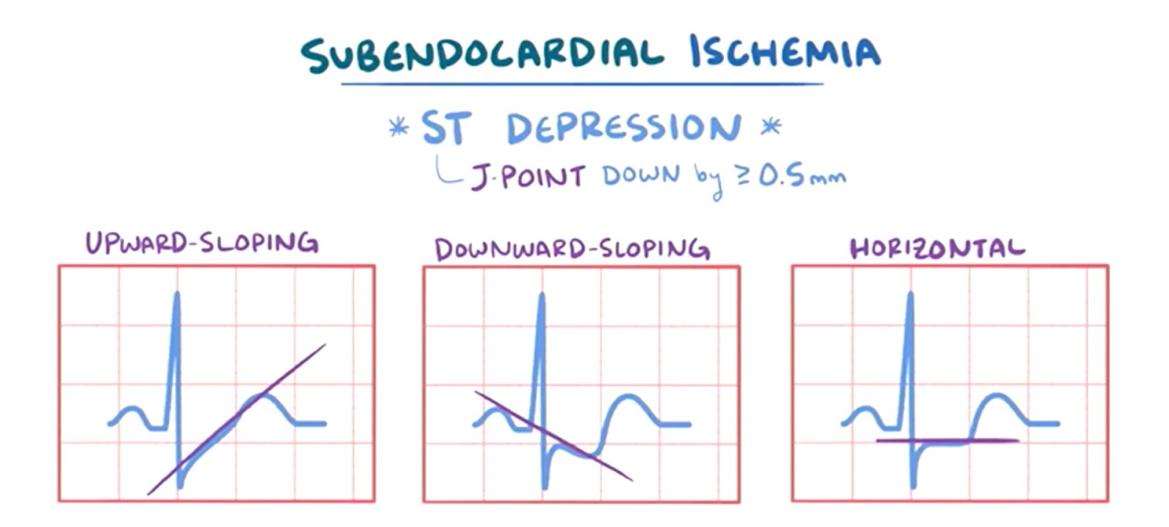 SUBENDOCARDIAL ISCHEMIA
* ST DEPRESSION *
J-POINT DOWN by ≥ 0.5mm
UPWARD-SLOPING
DOWNWARD-SLOPING
HORIZONTAL